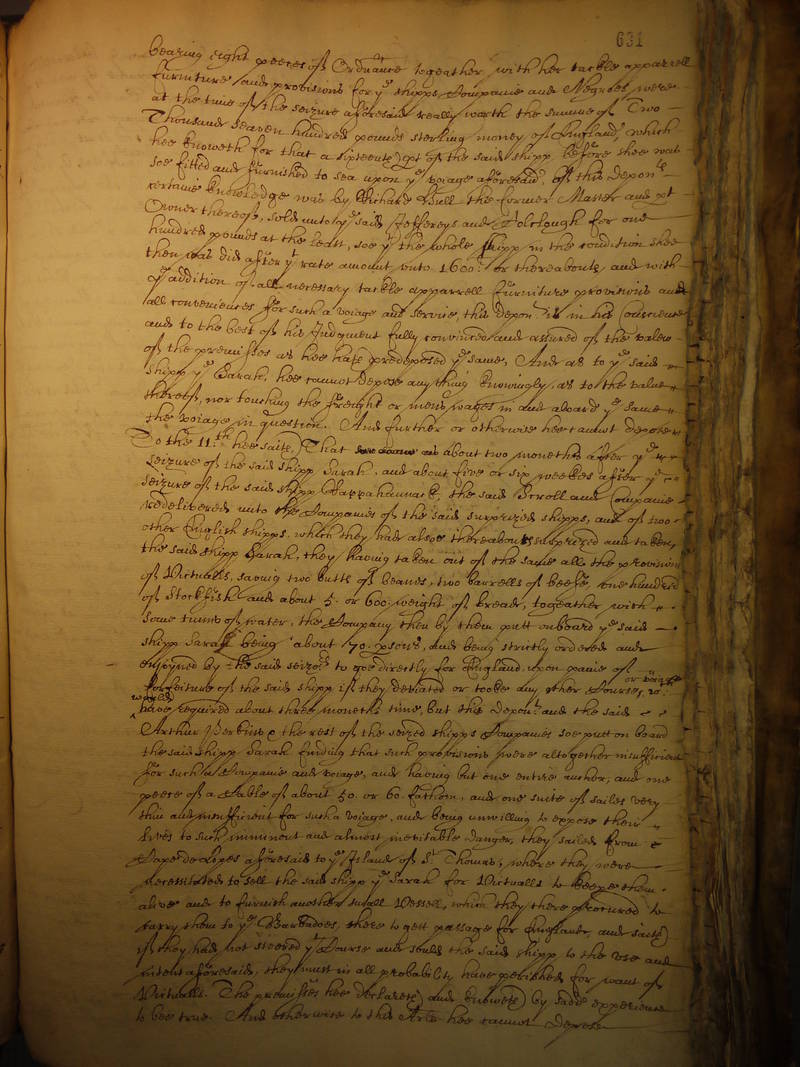 631
bearing eight peeces of Ordnance togeather with her tackle apparrell
furniture and provisions for ye shipps Companie and Negroes were
at the time of the seizure aforesaid really worth the summe of Two
Thousand Seaven hundred pounds sterling money of England which
hee knoweth for that a sixteenth pt of the said shipp before shee was
soe fitted and furnished to sea upon ye voiage aforesaid, of this Deponts
certaine knowledge was by Richard Bull the former Master and pt
Owner thereof, sold unto ye said Jeffereys and Colclough for one
hundred pounds at the least, soe yt the whole shipp in the condition shee
then was did after yt rate amount unto 1600li or thereabouts, and with
ye addition of all necessary tackle apparrell furniture provisions and
all conveniences for such a voiage and service, this Depont is in his Conscience
and to the best of his Judgment fully convinced and assured of the valew
of the premisses as hee hath predeposed ye same, And as to ye said
shipp ye Sarah, hee cannot depose any thing knowingly, as to the value
thereof, nor touching the freight or mens wages in and aboard ye same
the voiage in question. And further or otherwise hee cannot depose
To the 11.th hee saith, That about two moneths after ye
seizure of the said shipp Sarah, and about five or six weekes after ye
seizure of the said shipp Rappahannack, the said Scroll and Companie
redelivered unto the Companies of the said surprized shipps, and of two
other English shipps, which they had alsoe thereabouts surprized and taken,
the said shipp Sarah, they having taken out of the same all the provision
of Victualls, saving two butts of beanes, two barrells of beefe, one hundred
of Stockfish and about 5. or 600. weight of bread, togeather with
some tunns of water, the Company then by them putt onboard ye said
shipp Sarah being about 70. psons, and being strictly ordered and
enjoyned by the said seizors to goe directly for England, upon paine of
forfeiture of the said shipp if they deviated or tooke any other Course, or voiage wch
would have required about three moneths time, but this Depont and the said
Arthur Perkins & the rest of the seized shipps Companies soe putt on board
the said shipp Sarah finding that such provisions were altogether insufficient
for such a Companie and voiage, and having but one entire anchor, and one
peece of a Cable of about 50. or 60. fathom, and one suite of sailes very
thin and insufficient for such a voiage, and being unwilling to expose their
lives to such imminent and almost inevitable danger, they sailed from
Cape de Lopes aforesaid to ye Island of St Thomas, where they were
necessitated to sell the said shipp ye Sarah for Victualls to keepe them
alive and to furnish another small Vessell, which they there procured to
carry them to ye Barbadoes, there to gett passage for England, and saith
if they had not steered yt Course and sould the said shipp to the use and
intent aforesaid, they must in all probability have perished for want of
Victualls. The premisses hee declareth and knoweth by sadd experience
to bee true. And otherwise to this Arle hee cannot Depose